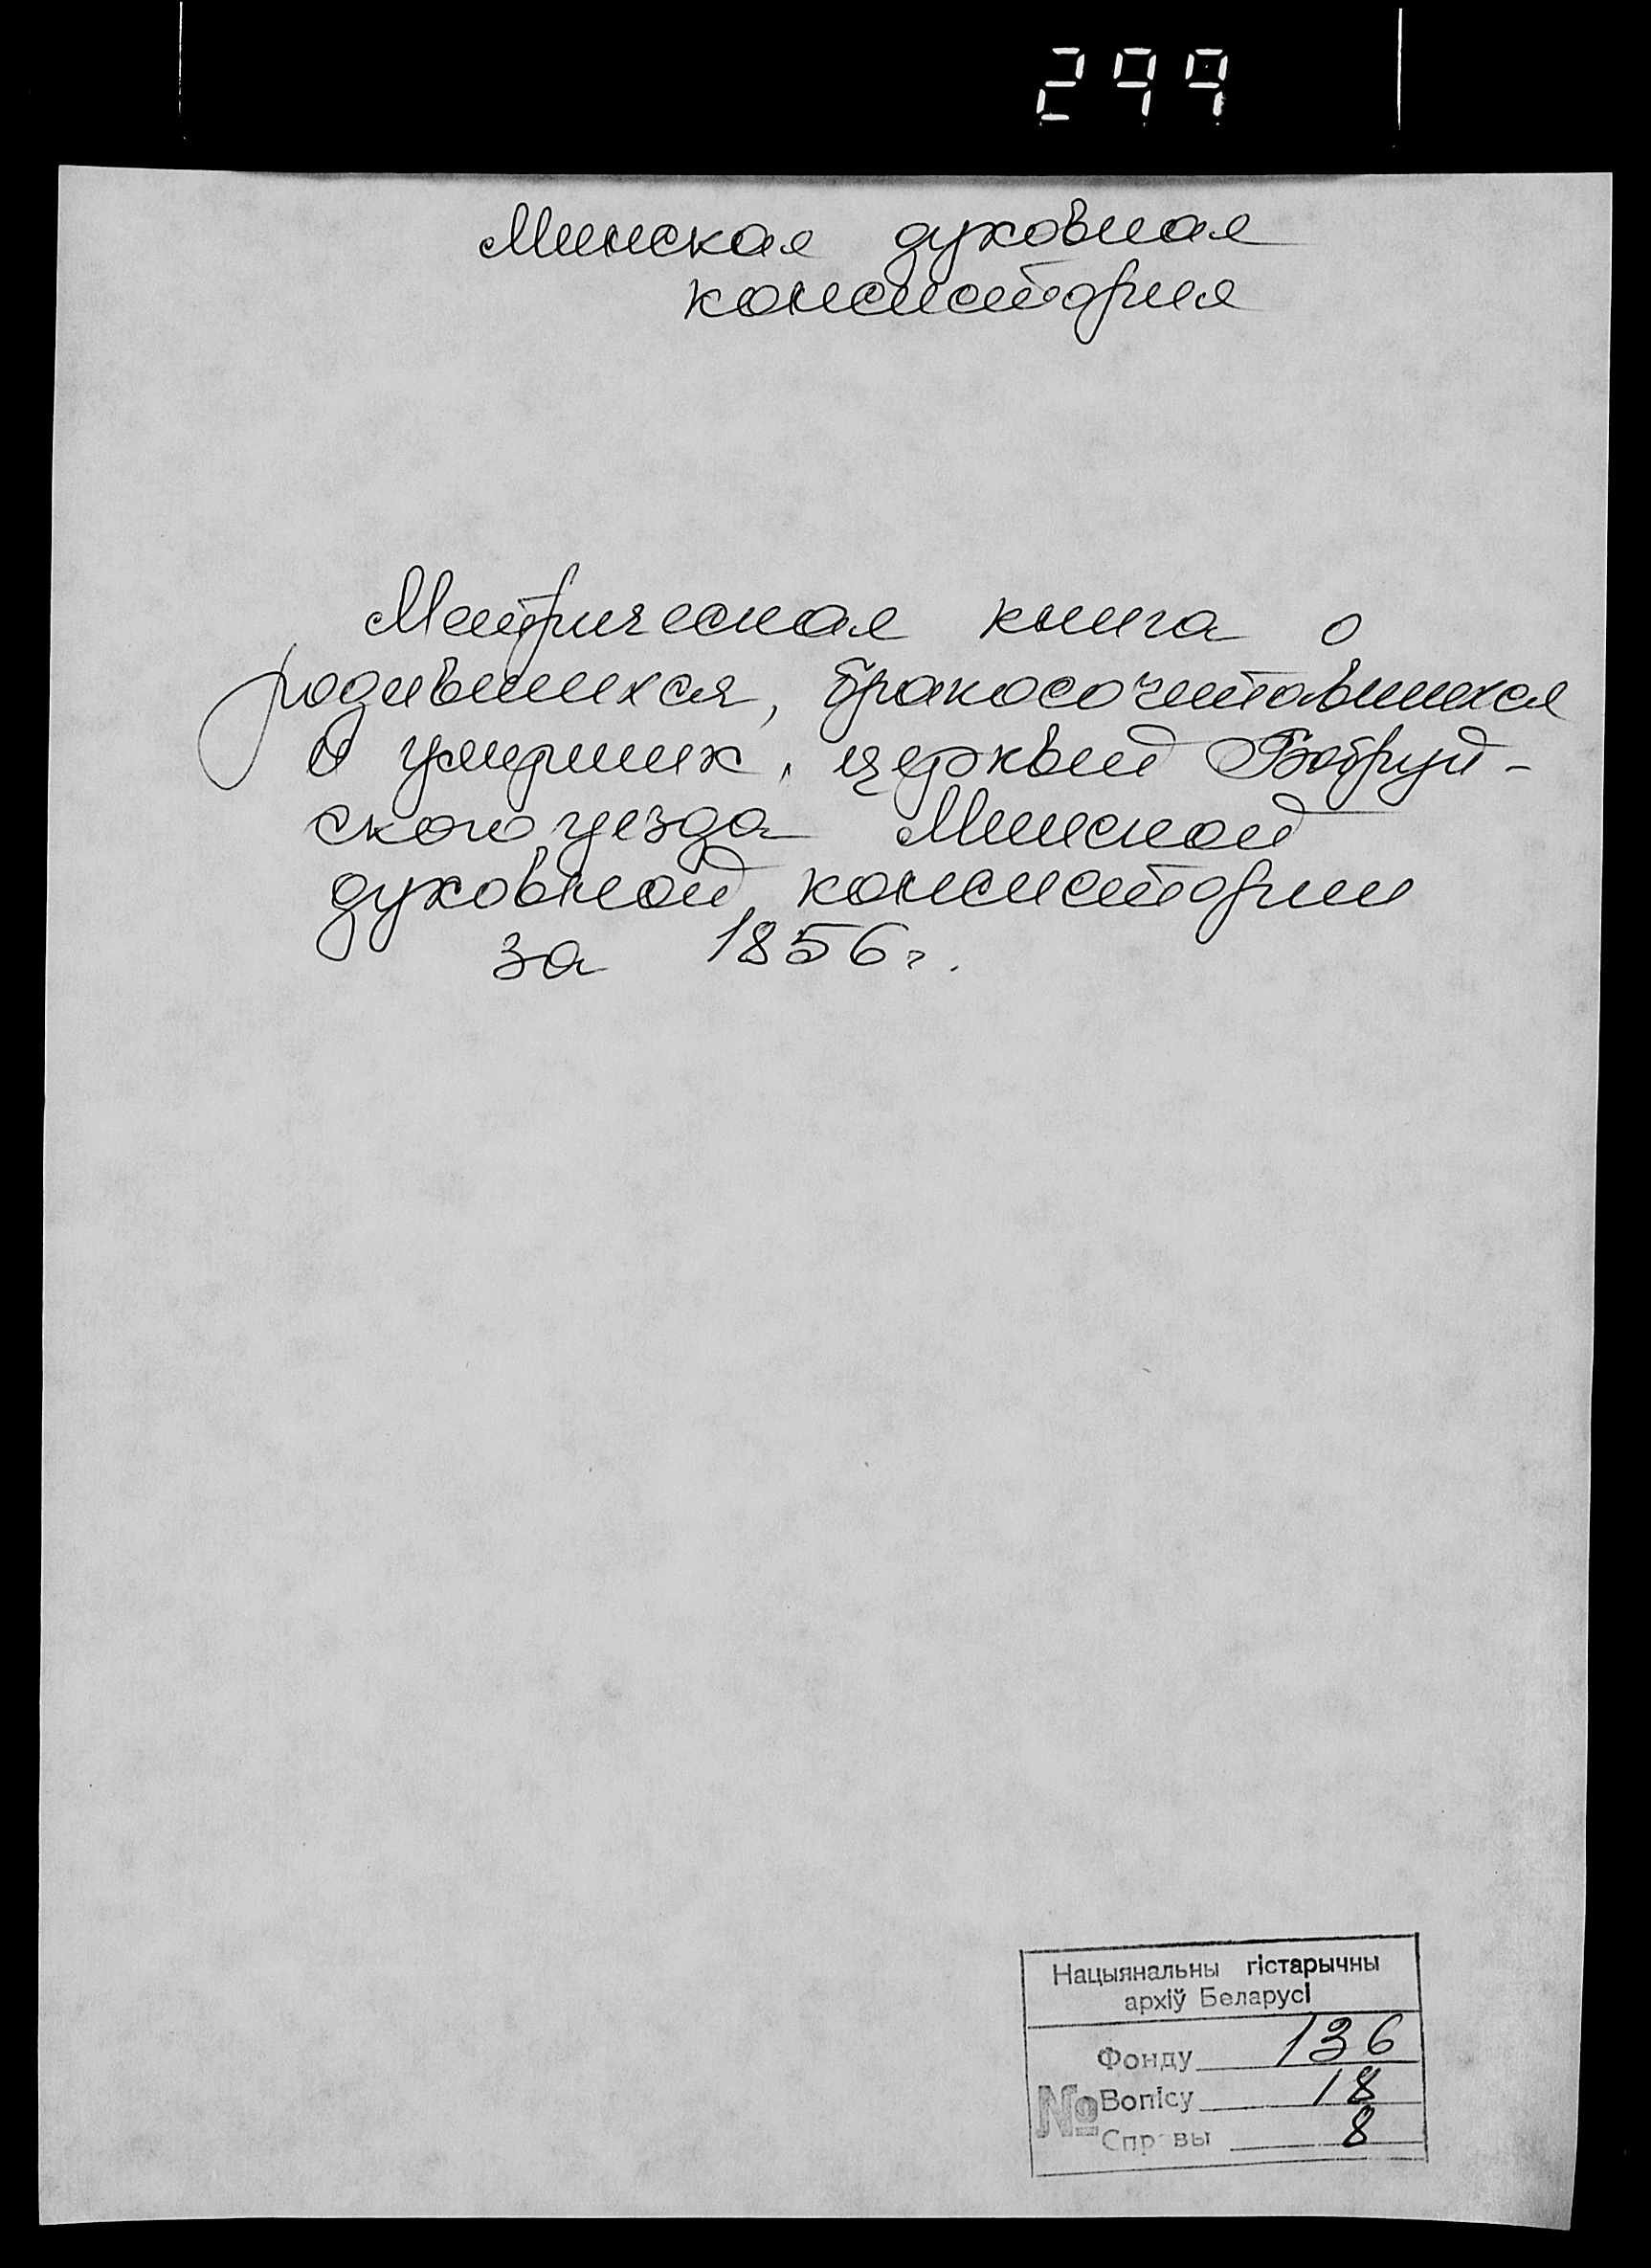 299
Минская духовная
консистория
Метрическая книга о
родившихся, бракосочитавшихся
и умерших, церквей Бобруй-
ского уезда Минской
духовной консистории
за 1856 г.
Нацыянальны гістарычны
архіў Беларусі
Фонду 136
№ Вопісу 18
Справы 8